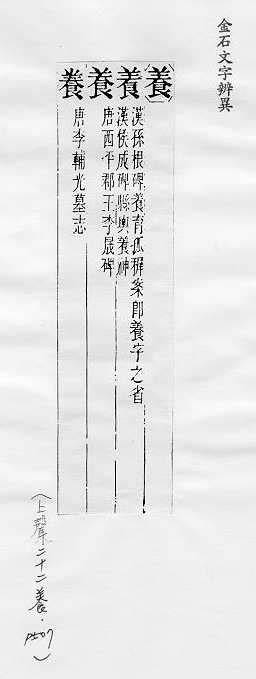 金石文字辨異
養
漢孫根碑養育孤穉案即養字之省
養
漢侯成碑縣輿養神
養
唐西平郡王李晟碑
養
唐李輔光墓志
（上聲二十二養．P507）